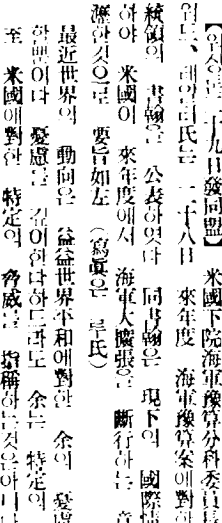 【와싱톤二十九日發同盟】 米國下院海軍豫算分科委員
테일러氏는 二十八日 來年度 海軍豫算案에對한
統領의 書翰을 公表하엿다 同書翰은 現下의 國際情
하야 米國이 來年度에서 海軍大擴張을 斷行하는 意
瀝한것으로 要旨如左 (寫眞은 루氏)
最近世界의 動向은 益益世界平和에對한 余의 憂慮
憂慮를 깁이한다하드라도 余는 特定의
至 米國에對한 特定의 脅威를 指稱하는것은아니다